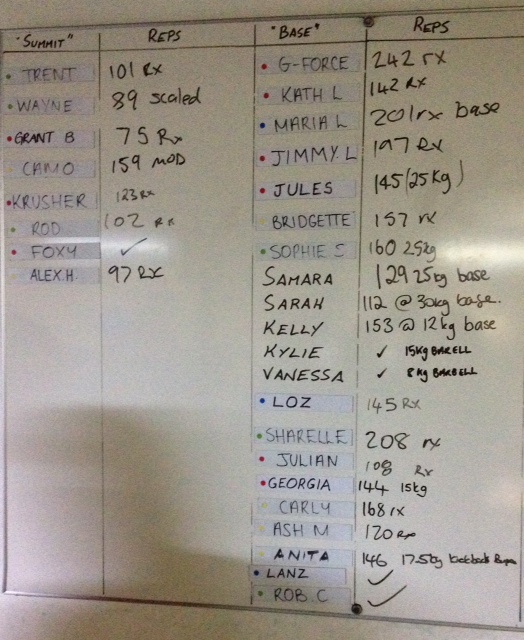 "SUMMIT" REPS
TRENT 101 RX
WAYNE 89 scaled
GRANT B 75 Rx
CAMO 159 MOD
KRUSHER 123 RX
ROD 102 RX
FOXY ✓
ALEX.H 97 RX
"BASE" REPS
G-FORCE 242 rx
KATH L 142 RX
MARIA L 201 rx base
JIMMY.L 197 RX
JULES 145 (25Kg)
BRIDGETTE 157 rx
SOPHIE S 160 25kg
SAMARA 129 25kg base
SARAH 112 @ 30kg base.
KELLY 153 @ 12kg base
KYLIE ✓ 15KG BARELL
VANESSA ✓ 8 KG BARBELL
LOZ 145 RX
SHARELLE 208 rx
JULIAN 108 Rx
GEORGIA 144 15kg
CARLY 168 rx
ASH M 120 RX
ANITA 146 17.5kg
LANZ ✓
ROB.C ✓